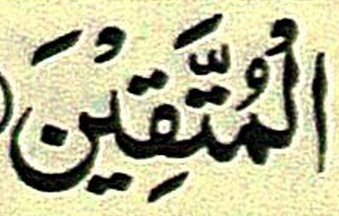 الْمُتَّقِيْنَ